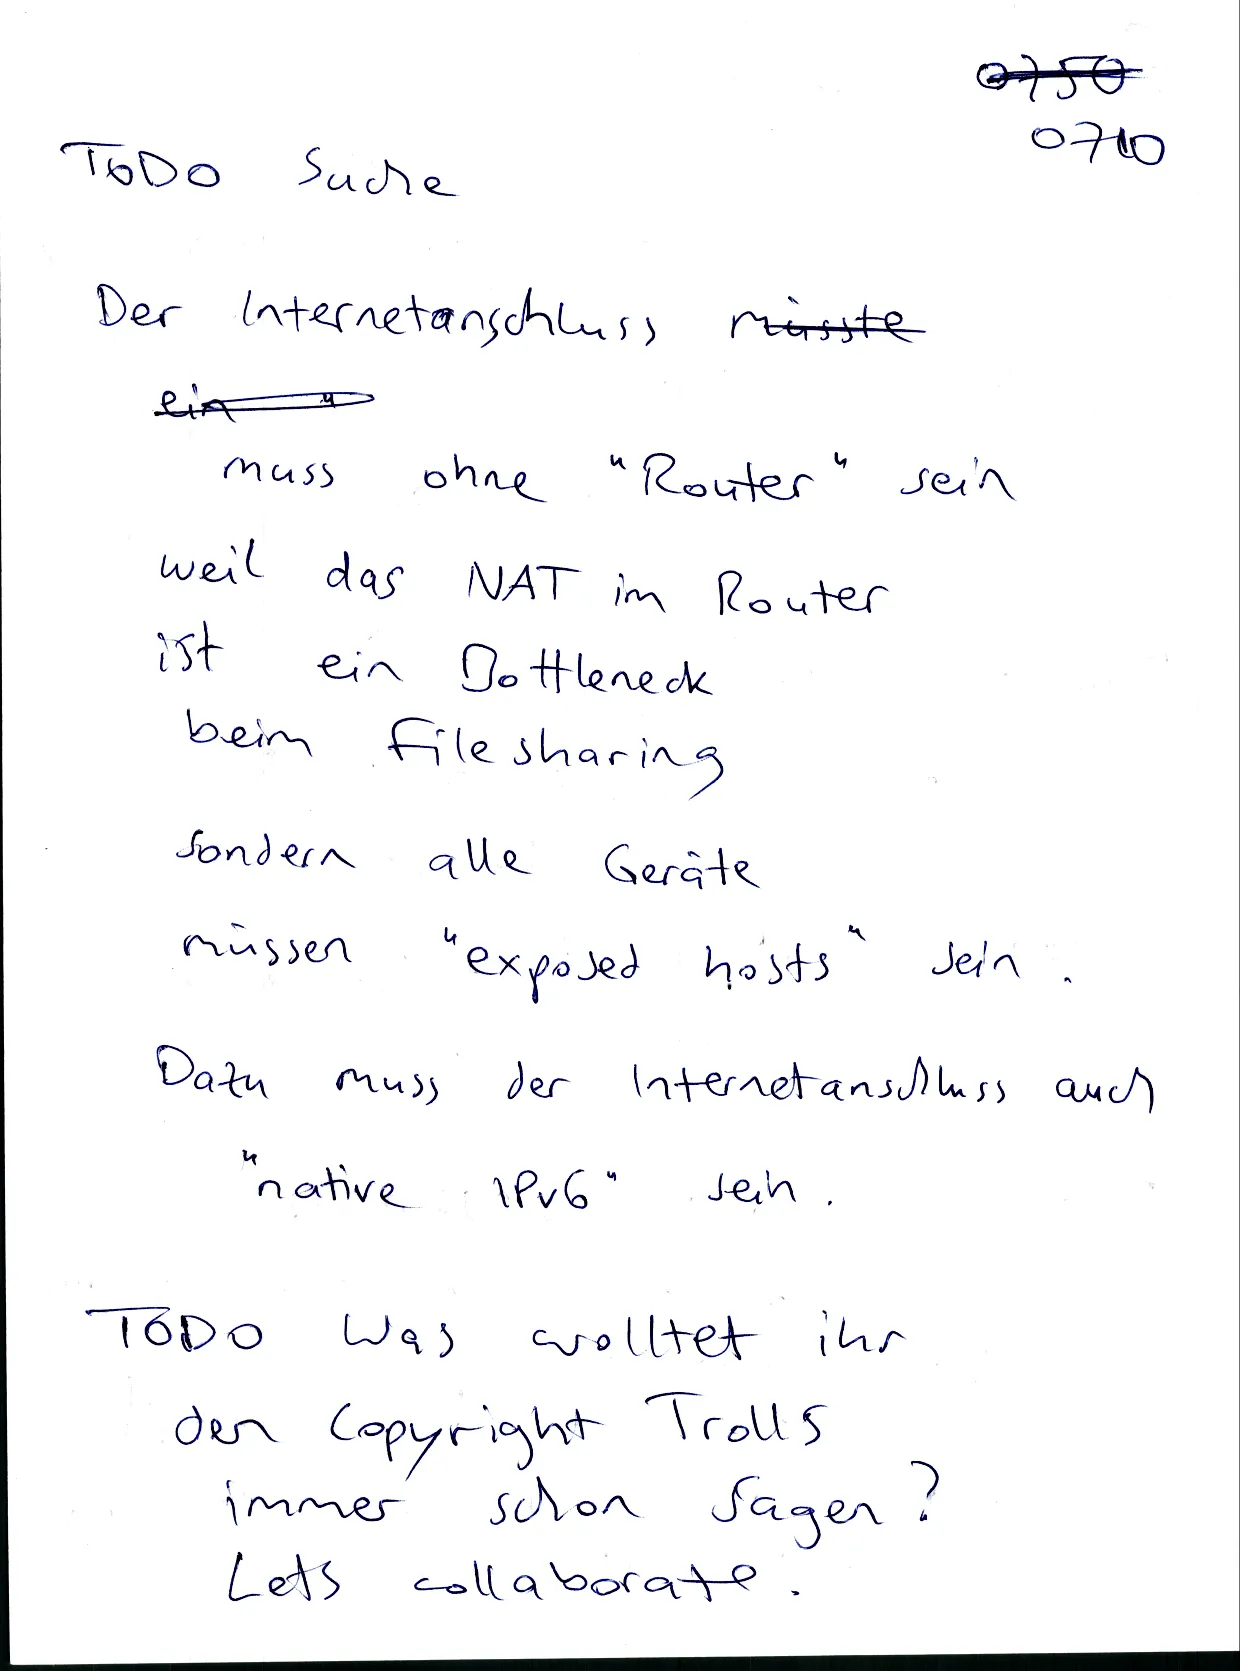 0750
0710
TODO Suche
Der Internetanschluss müsste
ein
muss ohne "Router" sein
weil das NAT im Router
ist ein Bottleneck
beim Filesharing
sondern alle Geräte
müssen "exposed hosts" sein.
Dazu muss der Internetanschluss auch
"native IPv6" sein.
TODO Was wolltet ihr
den Copyright Trolls
immer schon sagen?
Lets collaborate.